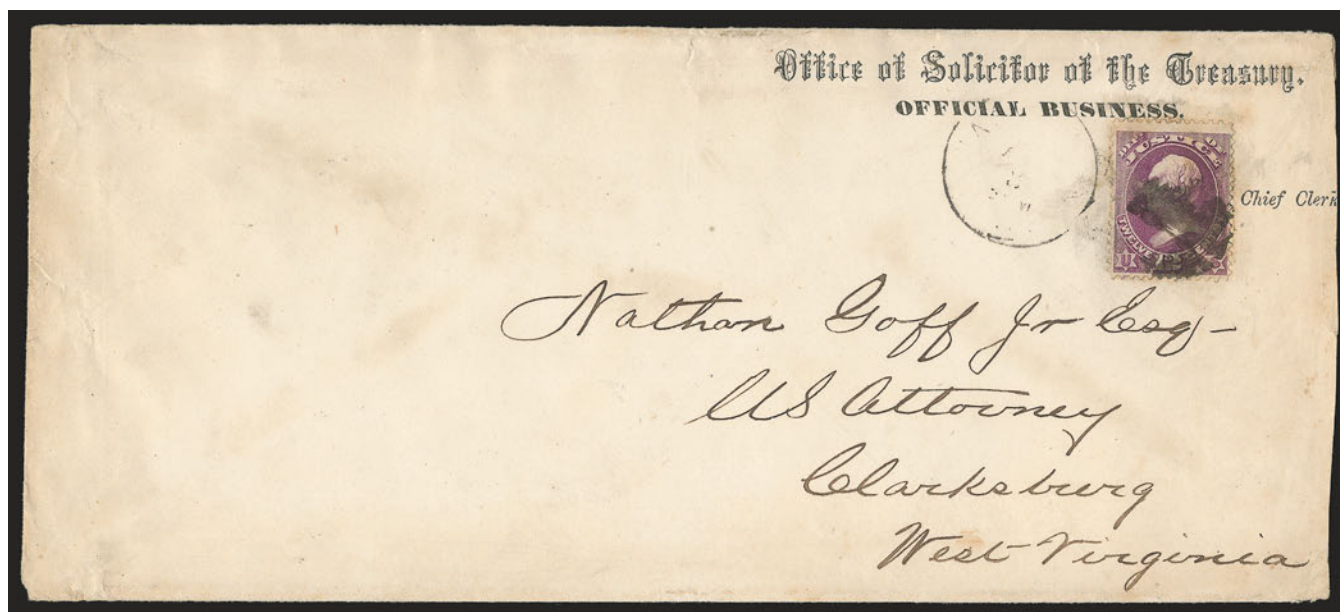 Office of Solicitor of the Treasury.
OFFICIAL BUSINESS.
DEPT. OF
JUSTICE
Chief Clerk
TWELVE
Nathan Goff Jr Esq-
US Attorney
Clarksburg
West Virginia